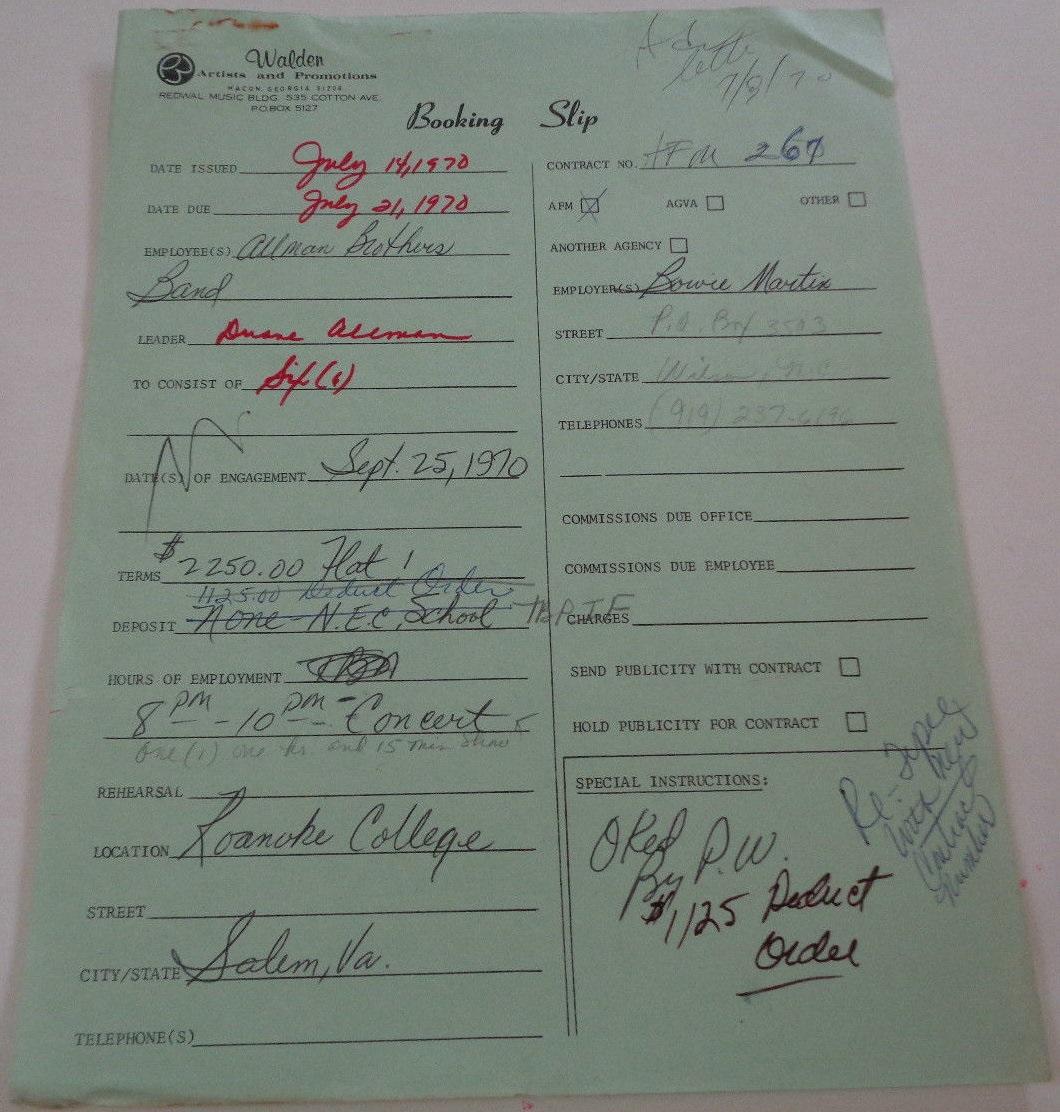 Walden
Artists and Promotions
MACON, GEORGIA 31208
REDWAL MUSIC BLDG. 535 COTTON AVE.
P.O. BOX 5127
7/8/70
Booking Slip
DATE ISSUED July 14, 1970
DATE DUE July 21, 1970
EMPLOYEE(S) Allman Brothers
Band
LEADER Duane Allman
TO CONSIST OF Six (6)
DATE(S) OF ENGAGEMENT Sept. 25, 1970
TERMS $2250.00 Flat!
1125.00 Deduct Order
DEPOSIT None - N.E.C. School
HOURS OF EMPLOYMENT
8 PM - 10 PM - Concert
One (1) one hr. and 15 min show
REHEARSAL
LOCATION Roanoke College
STREET
CITY/STATE Salem, Va.
TELEPHONE(S)
CONTRACT NO. AFM 267
AFM AGVA OTHER
ANOTHER AGENCY
EMPLOYER(S) Bowie Martin
STREET P.O. Box 3583
CITY/STATE Wilson, N.C
TELEPHONES (919) 237-6196
COMMISSIONS DUE OFFICE
COMMISSIONS DUE EMPLOYEE
CHARGES
SEND PUBLICITY WITH CONTRACT
HOLD PUBLICITY FOR CONTRACT
SPECIAL INSTRUCTIONS:
OKed
By P.W.
$1,125 Deduct
Order
Re-Type
with new
Contract
Number